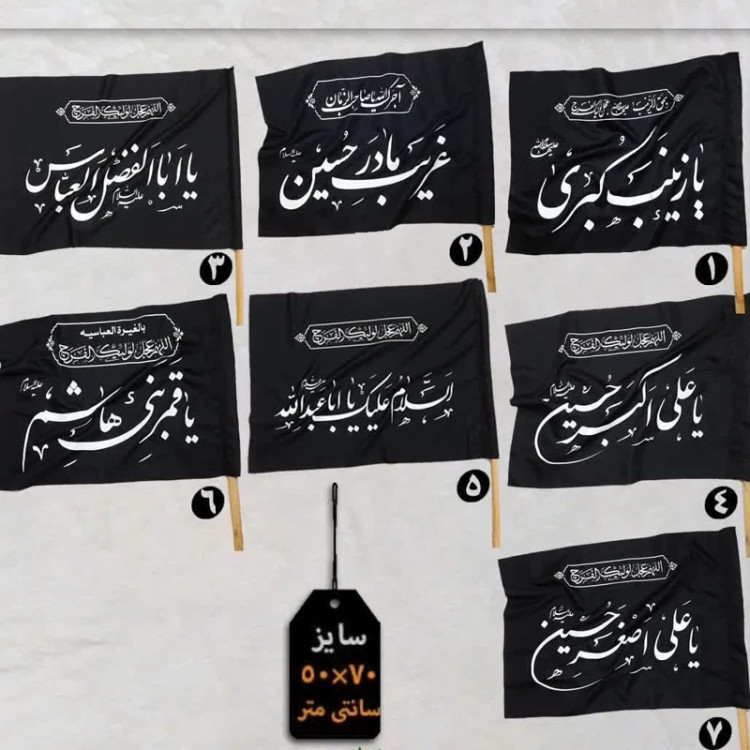 بحق الزینب علیها سلام عجل لولیک الفرج
یا زینب کبری
سلام‌الله علیها
۱
آجرک الله یا صاحب الزمان
غریب مادر حسین
علیه السلام
۲
اللهم عجل لولیک الفرج
یا اباالفضل العباس
علیه السلام
۳
اللهم عجل لولیک الفرج
یا علی اکبر حسین
علیه السلام
٤
اللهم عجل لولیک الفرج
السلام علیک یا اباعبدالله
۵
بالغیرة العباسیه
اللهم عجل لولیک الفرج
یا قمر بنی هاشم
علیه السلام
۶
اللهم عجل لولیک الفرج
یا علی اصغر حسین
علیه السلام
۷
سایز
۵۰×۷۰
سانتی متر